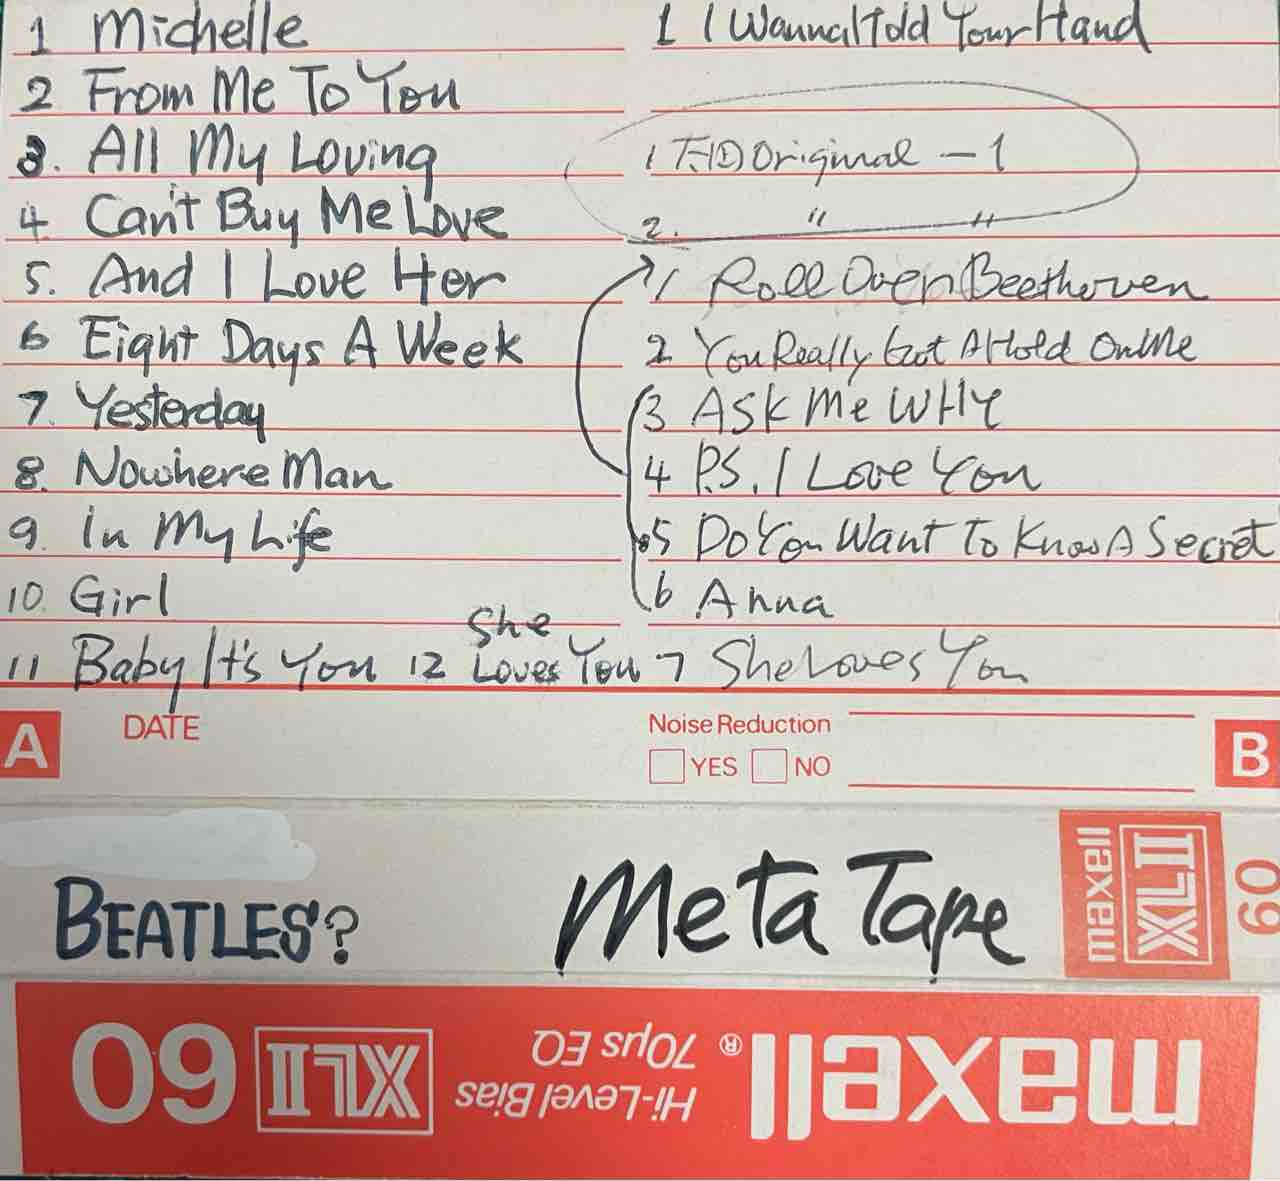 1 Michelle
2 From Me To You
3. All My Loving
4 Can't Buy Me Love
5. And I Love Her
6 Eight Days A Week
7. Yesterday
8. Nowhere Man
9. In My Life
10. Girl
11 Baby It's You 12 She Loves You
1 I Wanna Hold Your Hand
1 Original - 1
2. " "
1 Roll Over Beethoven
2 You Really Got A Hold On Me
3 ASK Me WHY
4 P.S. I Love You
5 Do You Want To Know A Secret
6 Anna
7 She Loves You
A DATE
Noise Reduction
YES NO
B
BEATLES?
Meta Tape
maxell XLII 60
maxell® Hi-Level Bias 70µs EQ XLII 60